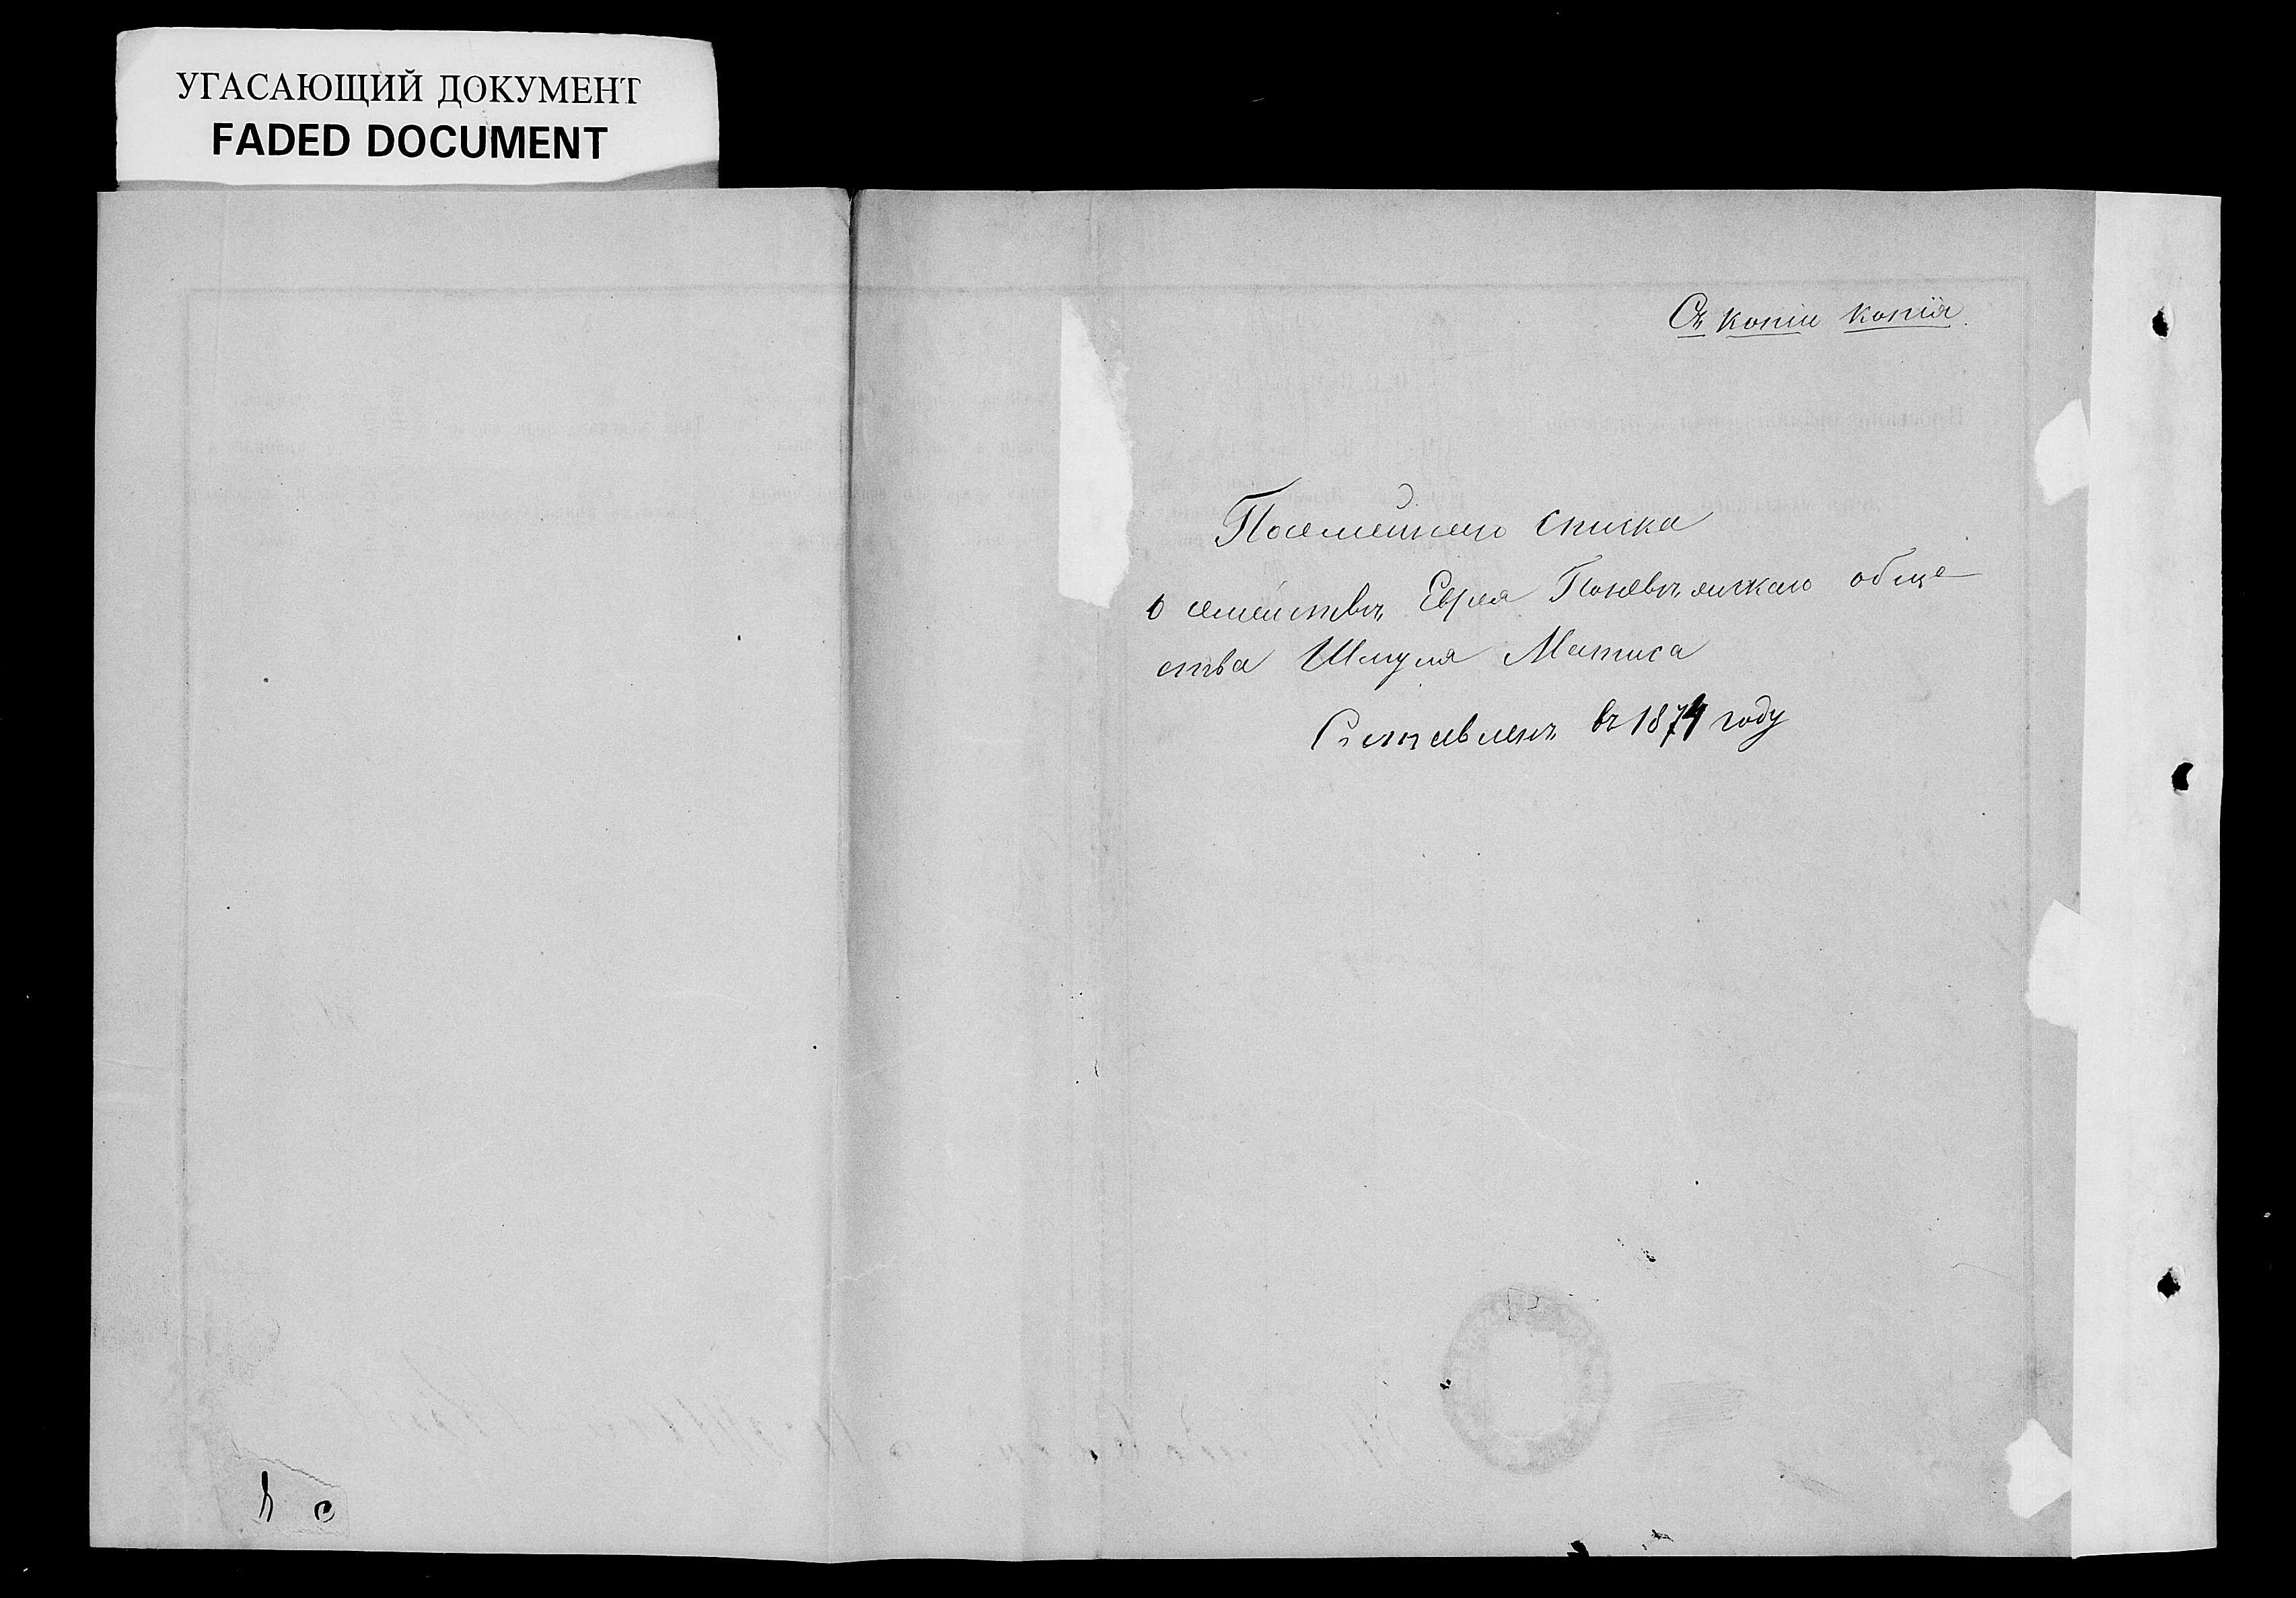 УГАСАЮЩИЙ ДОКУМЕНТ
FADED DOCUMENT
Съ копіи копія
Посемейнаго списка
о семействѣ Еврея Поневѣжскаго обще
ства Шмуля Матиса
Составленъ въ 1874 году